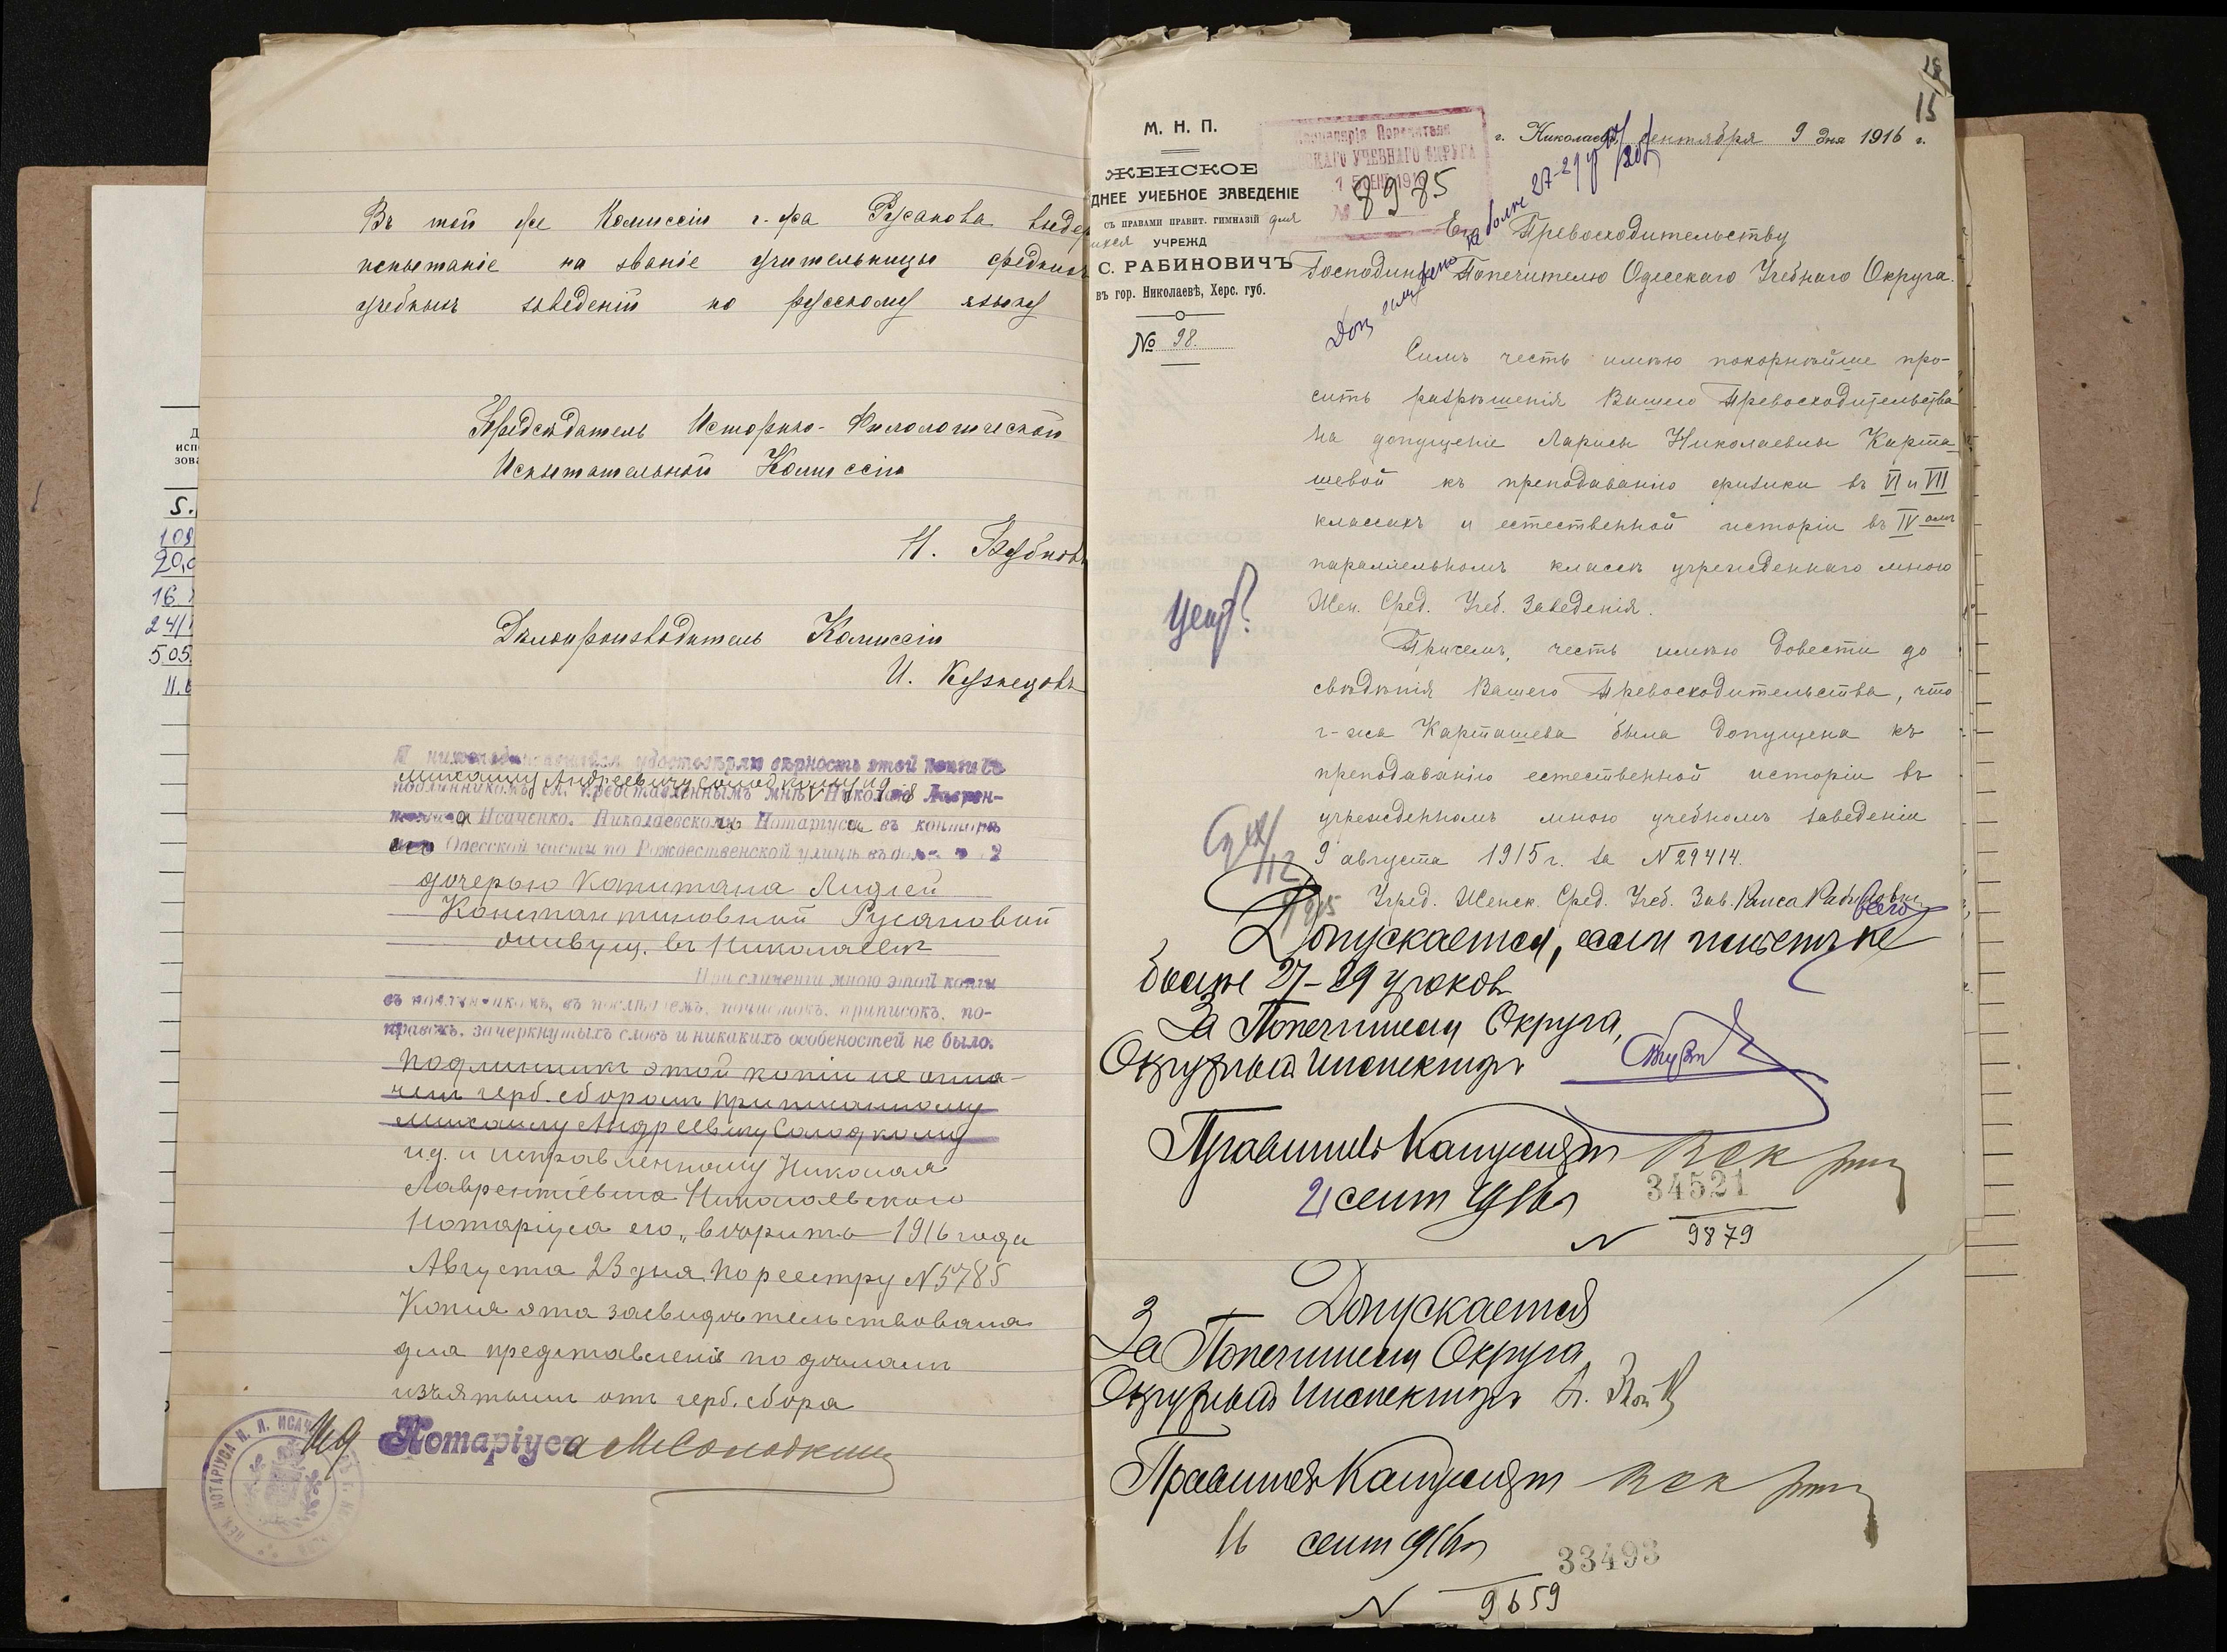 Въ той же Комиссіи г-жа Русанова выдер
испытаніе на званіе учительницы среднихъ
учебныхъ заведеній по русскому языку
Предсѣдатель Историко-Филологической
Испытательной Комиссіи
Дѣлопроизводитель Комиссіи
И. Кузнецовъ
удостовѣряю вѣрность этой копіи съ
Михаилу Андреевичу Солодкому ид
подлинникомъ ея, представленнымъ мнѣ
Исаченко, Николаевскому Нотаріуса въ конторѣ
его Одесской части по Рождественской улицѣ въ № 2
дочерью Капитана Лидіей
Константиновной Русановой
живущ. въ Николаевѣ
При сличеніи мною этой копіи
съ подлинникомъ, въ послѣднемъ, почистокъ, приписокъ, по-
правокъ, зачеркнутыхъ словъ и никакихъ особеностей не было.
Подлинникъ этой копіи не опла-
ченъ герб. сборомъ приписанному
Михаилу Андреевичу Солодкому
ид. и исправленному Николая
Лаврентіевича Николаевского
Нотаріуса его, вѣрить 1916 года
Августа 23 дня По реестру N 5785
Копія эта засвидѣтельствована
для представленія по дѣламъ
изъятымъ отъ герб. сбора
ИД Нотаріуса М Солодкин
НОТАРІУСА Н. Л. ИСАЧ
Д
исп
зова
S.
109
20,0
16
24/
505
II.
15
М. Н. П.
ЖЕНСКОЕ
ДНЕЕ УЧЕБНОЕ ЗАВЕДЕНІЕ
СЪ ПРАВАМИ ПРАВИТ. ГИМНАЗІЙ для
УЧРЕЖД
С. РАБИНОВИЧЪ
въ гор. Николаевѣ, Херс. губ.
№ 98.
Канцелярія Попечителя
УЧЕБНАГО ОКРУГА
15 СЕН 1916
№ 8985
г. Николаевъ, сентября 9 дня 1916 г.
Его Превосходительству
Господину Попечителю Одесскаго Учебнаго Округа.
более 27-29 ур
Симъ честь имѣю покорнѣйше про-
сить разрѣшенія Вашего Превосходительства
на допущеніе Ларисы Николаевны Карта-
шевой къ преподаванію физики въ VI и VII
классахъ и естественной исторіи въ IV омъ
параллельномъ классѣ учрежденнаго мною
Жен. Сред. Учеб. Заведенія.
Причемъ, честь имѣю довести до
свѣдѣнія Вашего Превосходительства, что
г-жа Карташева была допущена къ
преподаванію естественной исторіи въ
учрежденномъ мною учебномъ заведеніи
9 августа 1915 г. за N 29414.
Учред. Женск. Сред. Учеб. Зав. Раиса Рабинович
Допускается, если имѣетъ не
всего
болѣе 27-29 уроковъ
За Попечителя Округа,
Окружный Инспекторъ
Правитель Канцеляріи
21 сент 1916 г
34521
N 9879
Допускается
За Попечителя Округа
Окружный Инспекторъ
Правитель Канцеляріи
16 сент 1916 г
33493
N 9659